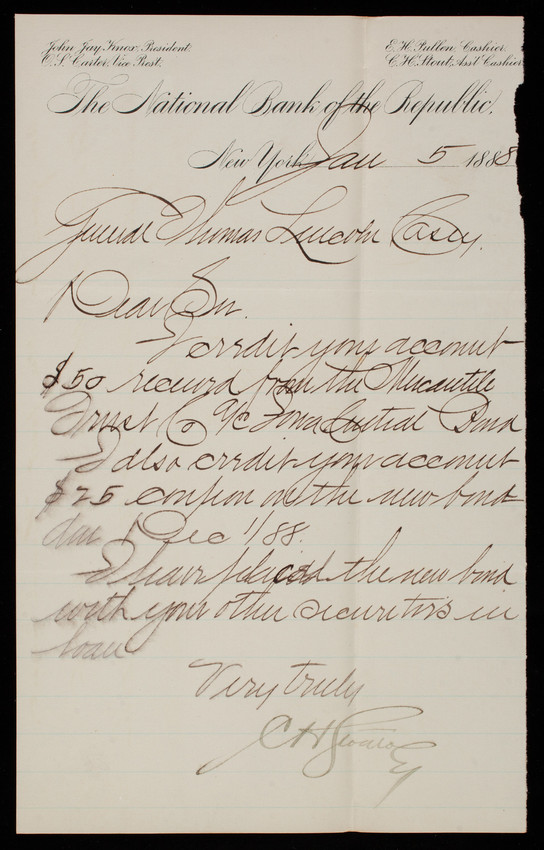 John Jay Knox, President.
O. S. Carter, Vice Prest.
E. H. Pullen, Cashier.
C. H. Stout, Ass't Cashier
The National Bank of the Republic.
New York Jan 5 1888
General Thomas Lincoln Casey.
Dear Sir.
I credit your account
$50 received from the Mercantile
Trust Co a/c Iowa Central Bond
I also credit your account
$25 coupon on the new bond
due Dec 1/88.
I have placed the new bond
with your other securities in
loan
Very truly
C H Stout